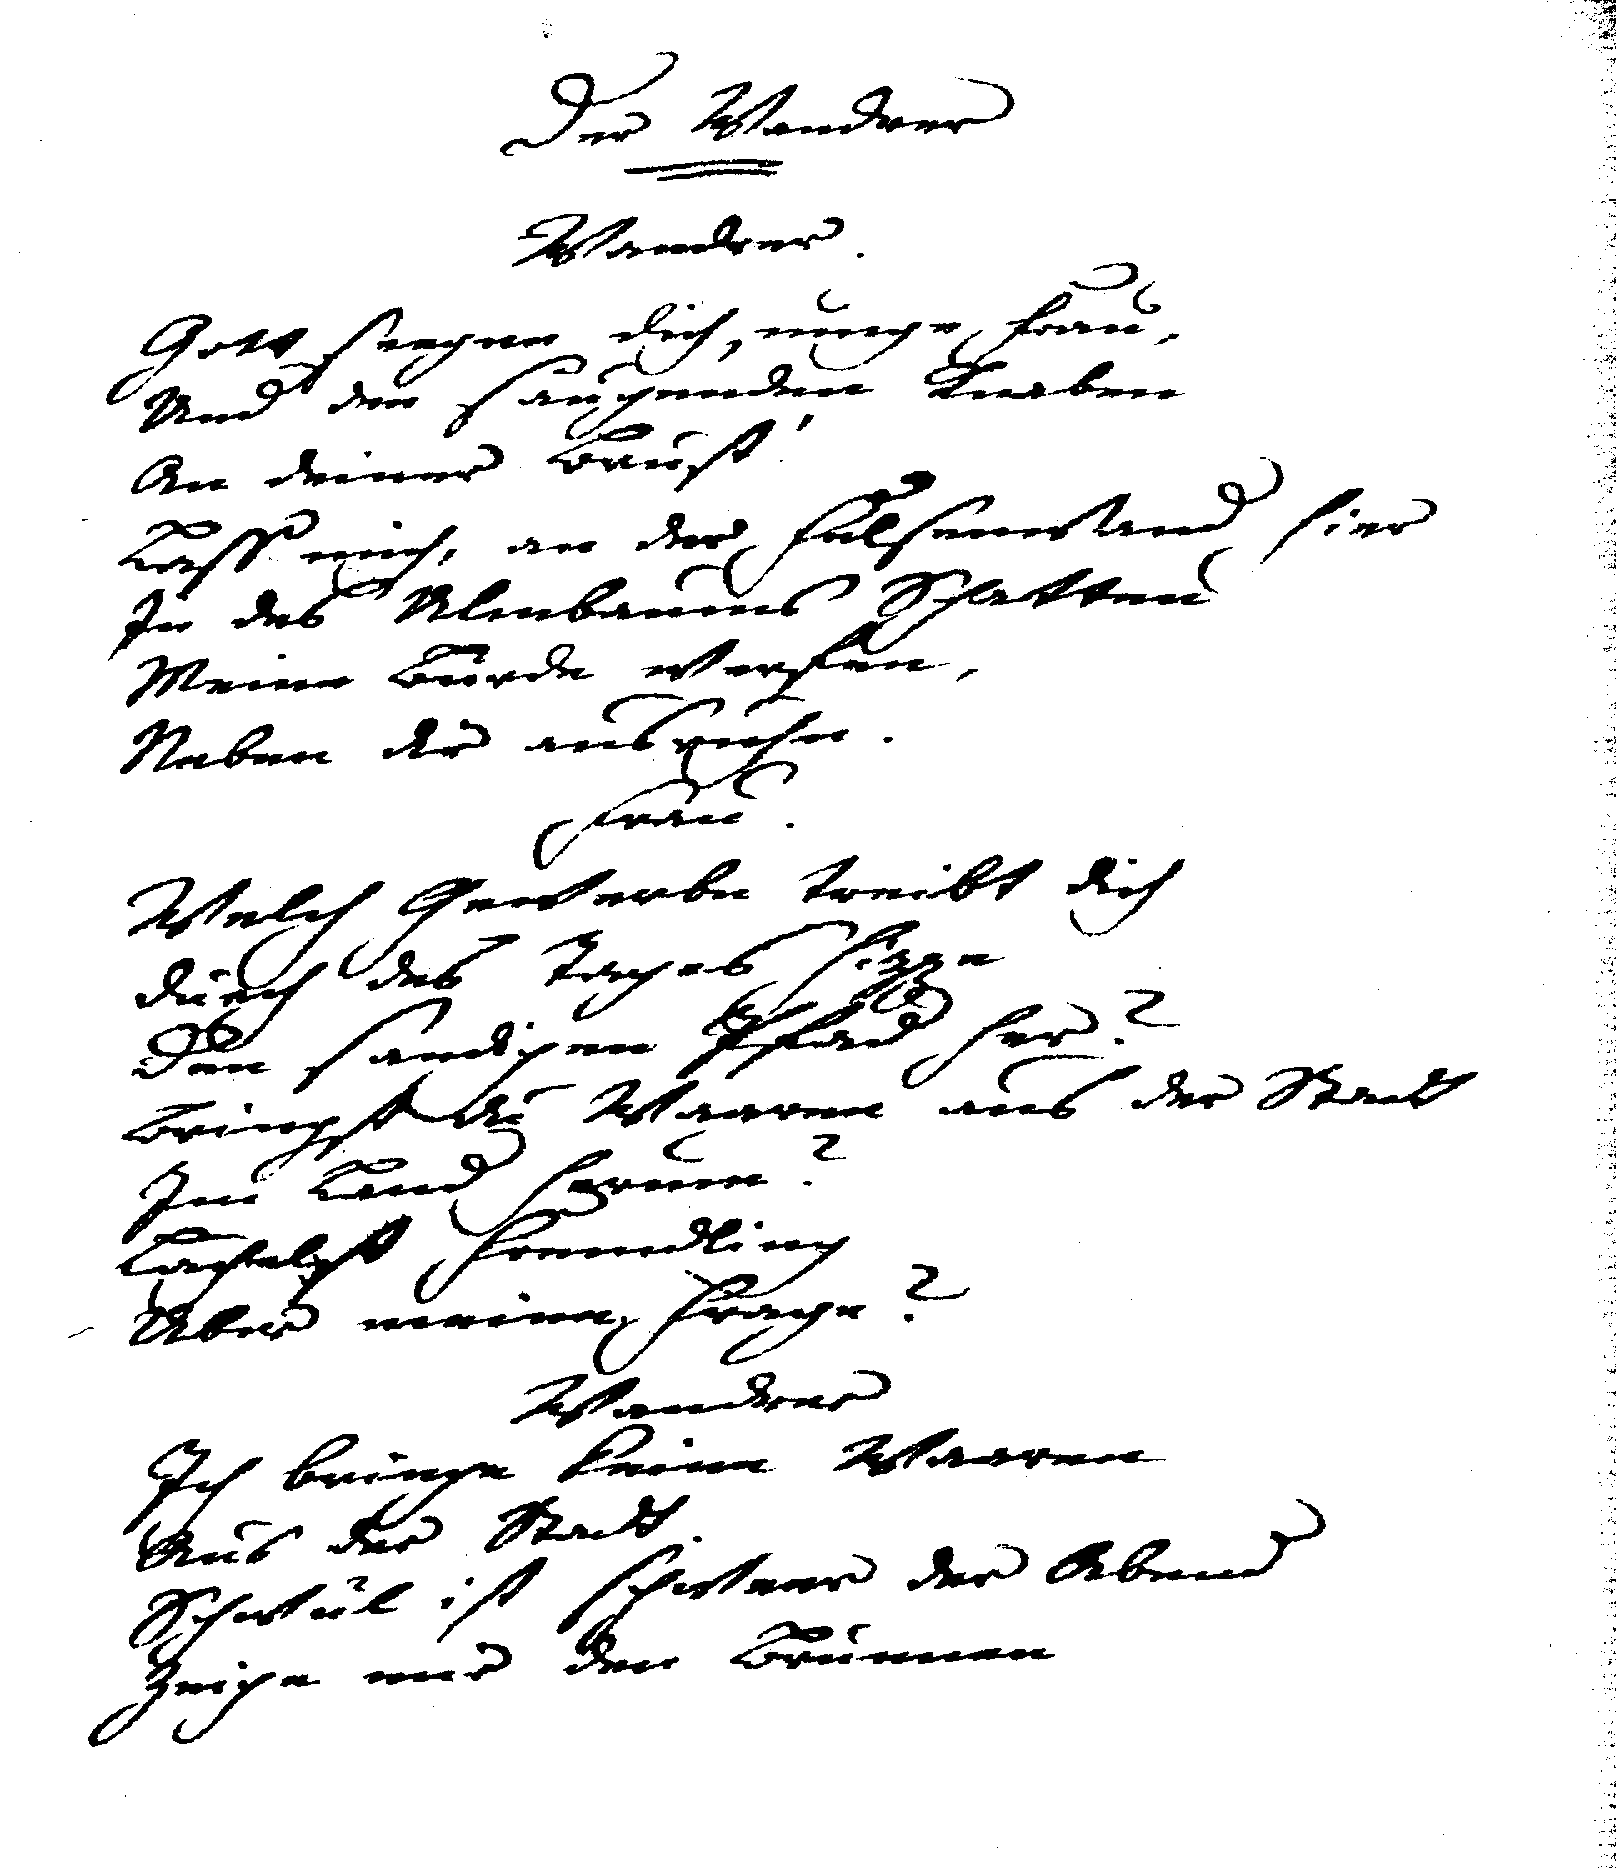 Der Wandrer
Wandrer.
Gott seegne dich, iunge Frau,
Und den saugenden Knaben
An deiner Brust!
Lass mich, an der Felsenwand hier
In des Ulmbaums Schatten
Meine Bürde werfen,
Neben dir ausruhn.
Frau.
Welch Gewerbe treibt dich
durch des Tages Hizze
Den sandigen Pfad her?
Bringst du Waaren aus der Stadt
Im Land herum?
Lächelst Fremdling
Über meine Frage?
Wandrer
Ich bringe keine Waaren
Aus der Stadt.
Schwül ist schweer der Abend
Zeige mir den Brunnen